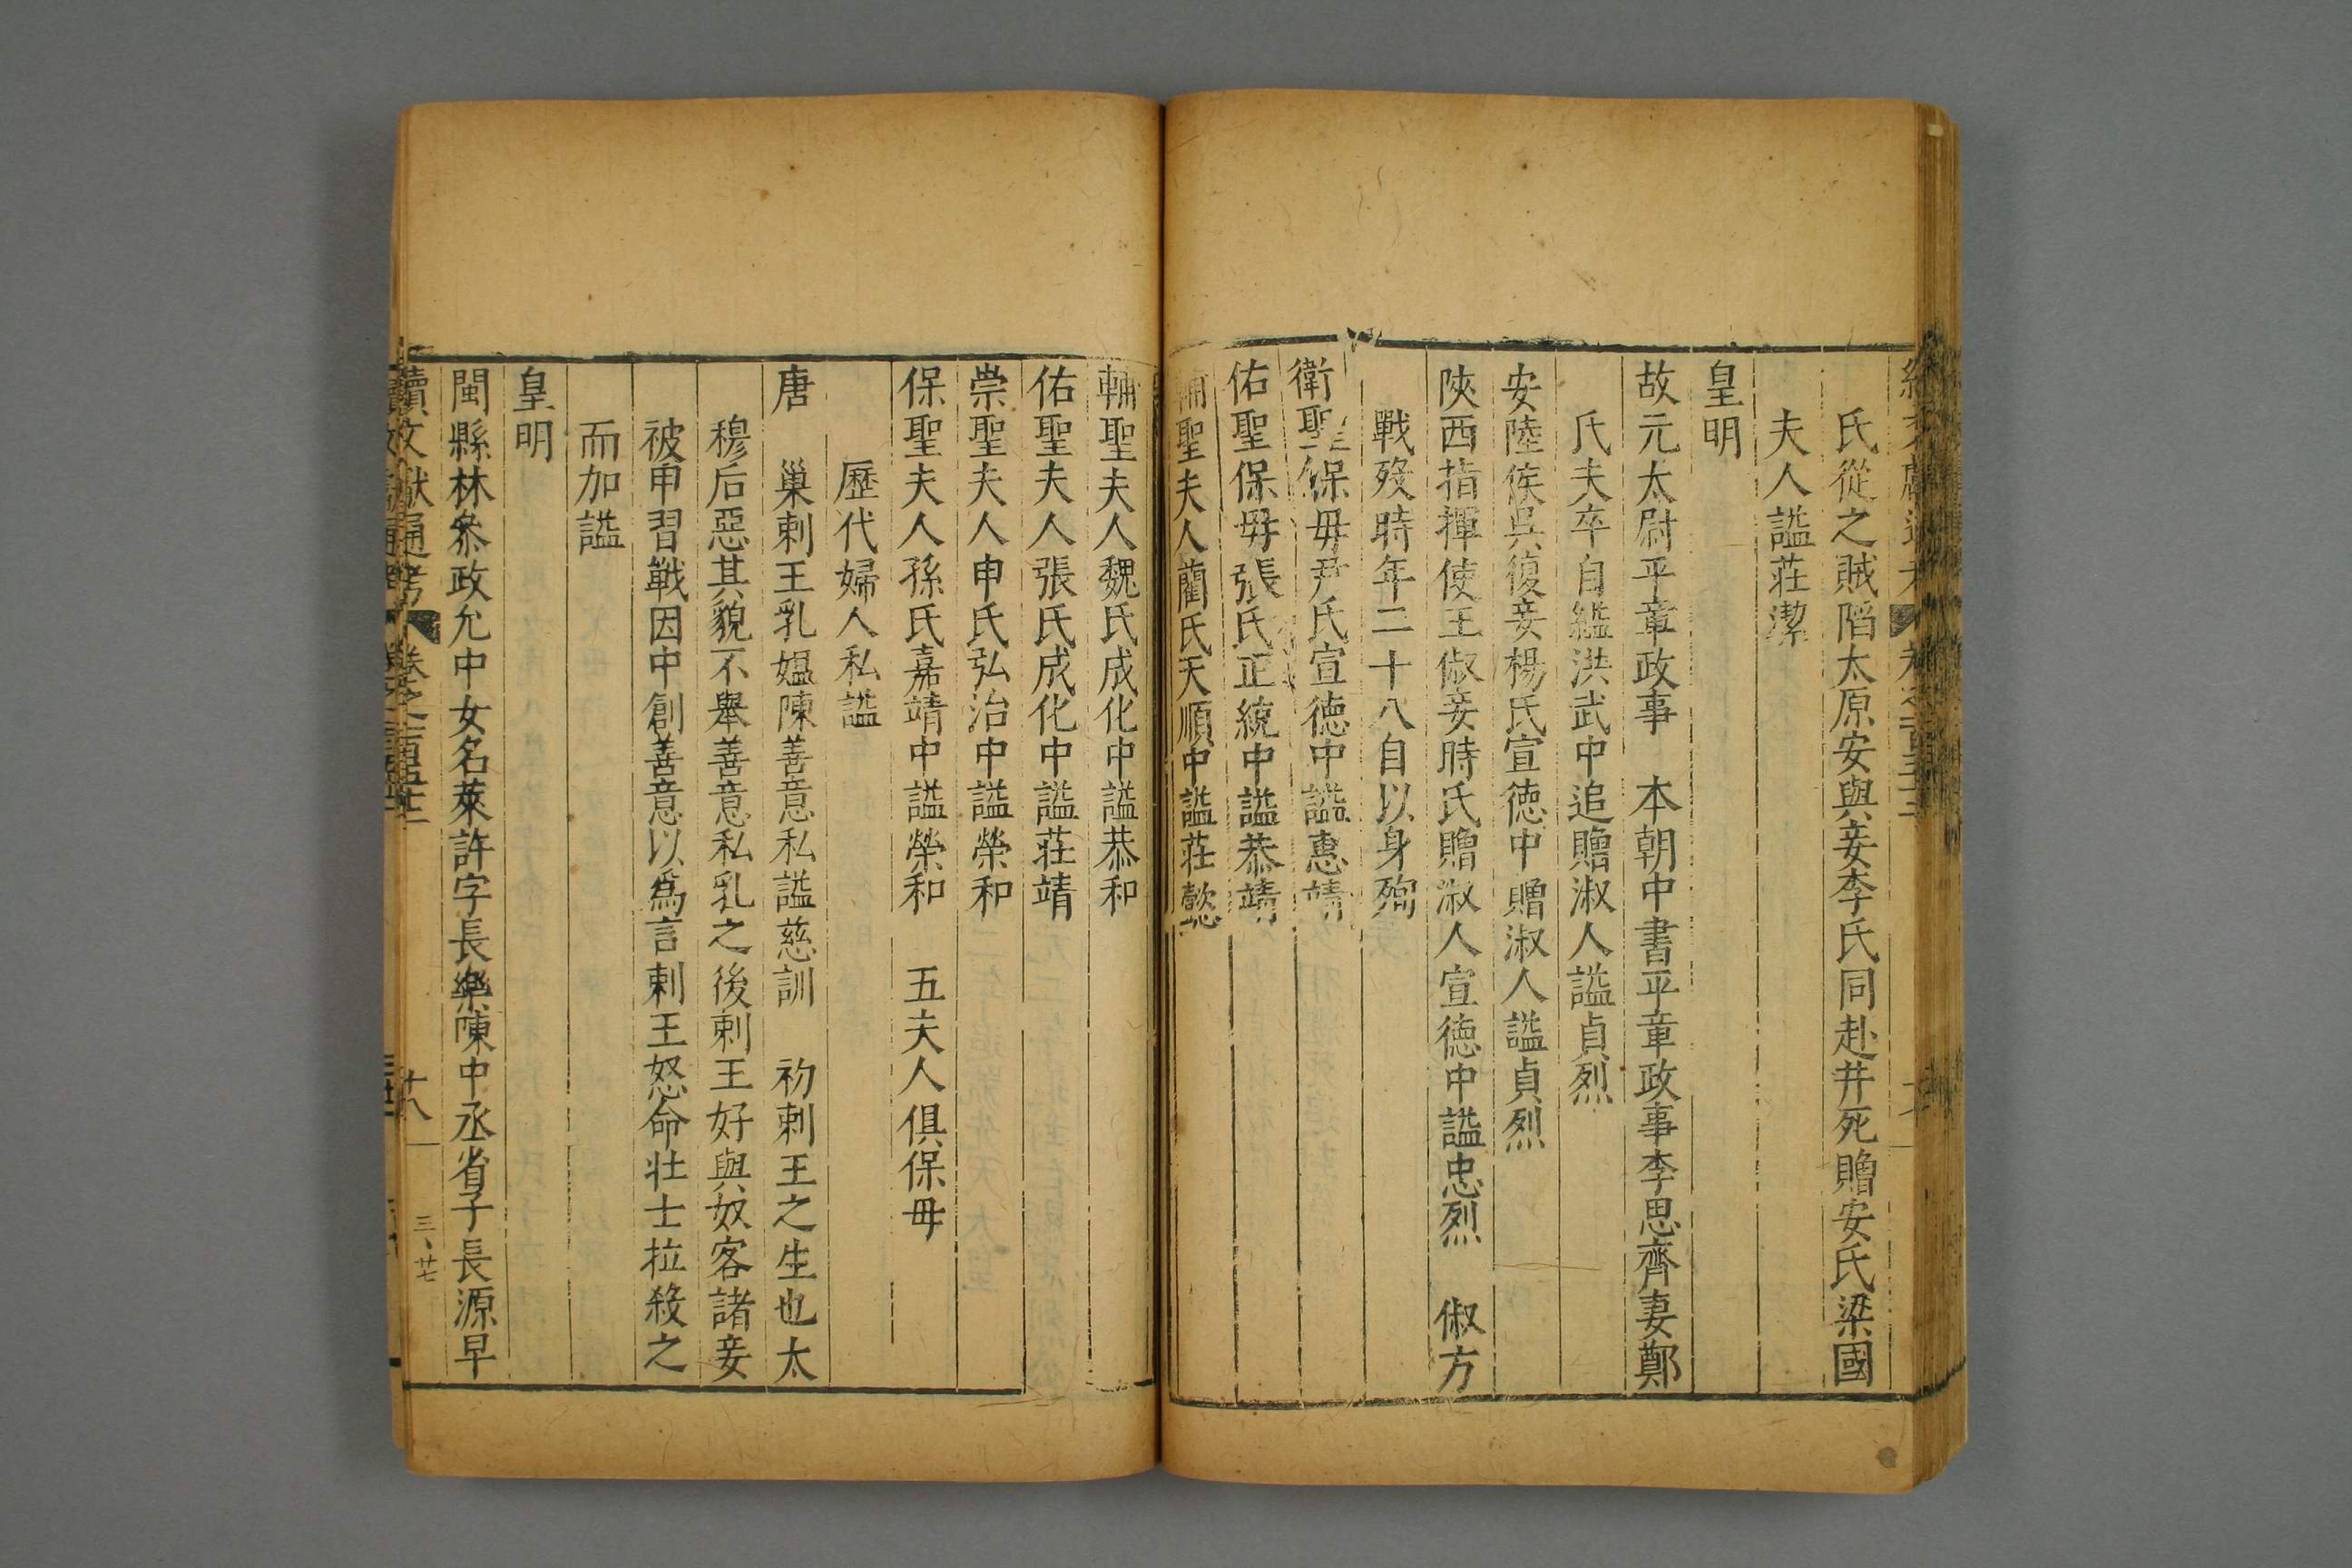 氏從之賊陷太原安與妾李氏同赴井死贈安氏梁國
夫人謚莊潔
皇明
故元太尉平章政事　本朝中書平章政事李思齊妻鄭
氏夫卒自縊洪武中追贈淑人謚貞烈
安陸侯吳復妾楊氏宣德中贈淑人謚貞烈
陝西指揮使王俶妾時氏贈淑人宣德中謚忠烈　俶方
戰歿時年二十八自以身殉
衛聖保母尹氏宣德中謚惠靖
佑聖保母張氏正統中謚恭靖
輔聖夫人藺氏天順中謚莊懿
輔聖夫人魏氏成化中謚恭和
佑聖夫人張氏成化中謚莊靖
崇聖夫人申氏弘治中謚榮和
保聖夫人孫氏嘉靖中謚榮和　五夫人俱保母
歷代婦人私謚
唐　巢剌王乳媼陳善意私謚慈訓　初剌王之生也太
穆后惡其貌不舉善意私乳之後剌王好與奴客諸妾
被甲習戰因中創善意以為言剌王怒命壯士拉殺之
而加謚
皇明
閩縣林叅政允中女名萊許字長樂陳中丞省子長源早
續文獻通考　卷之一百五十三
十八
三、廿七